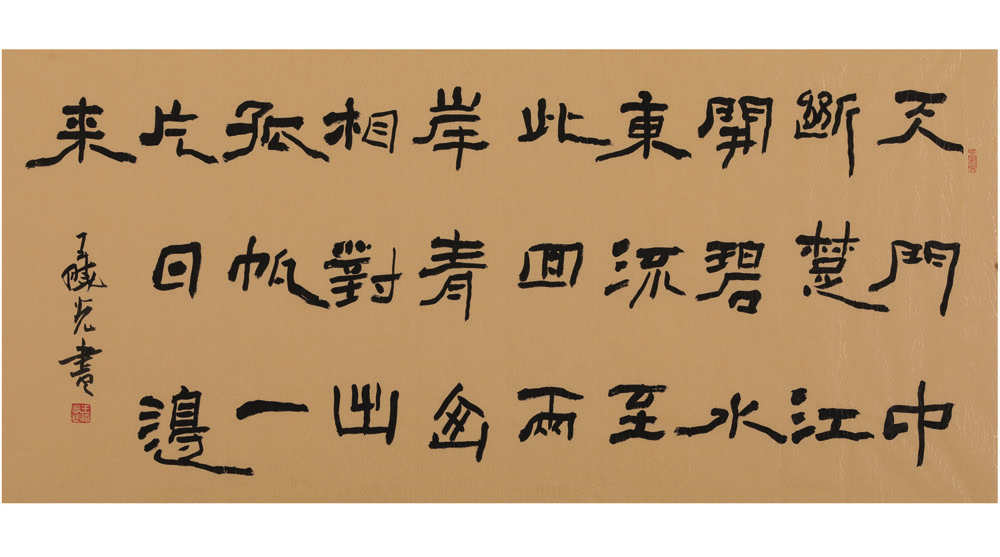 天門中
斷楚江
開碧水
東流至
此回兩
岸青山
相對出
孤帆一
片日邊
来
王曉光書